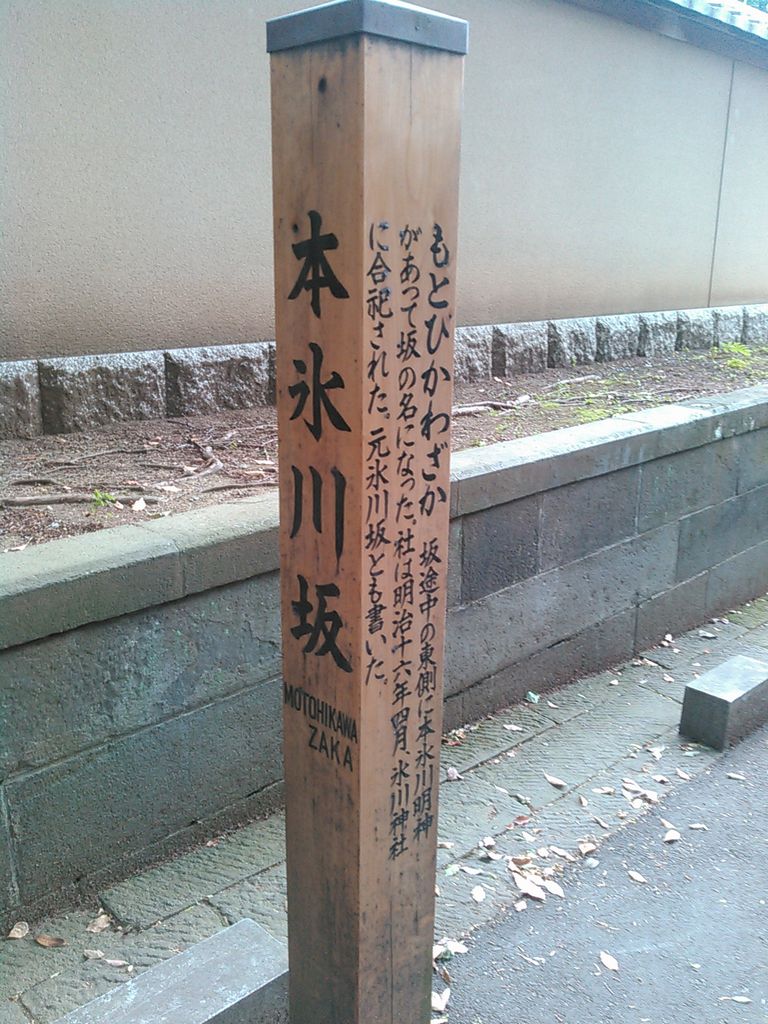 本氷川坂
MOTOHIKAWA
ZAKA
もとびかわざか 坂途中の東側に本氷川明神
があって坂の名になった。社は明治十六年四月、氷川神社
に合祀された。元氷川坂とも書いた。